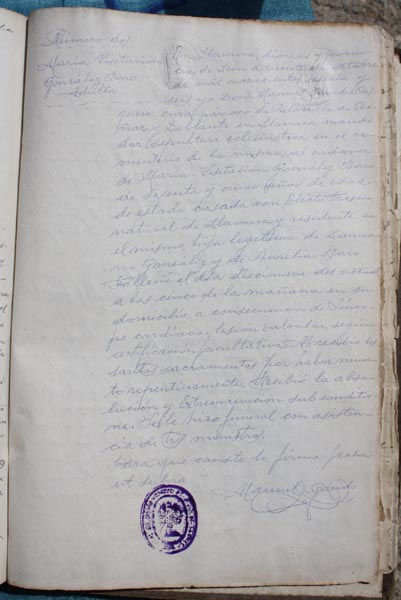 Número dos
María Visitación
González Baro
Adulta
En Llamera, diócesis y provin-
cia de León a veinte de octubre
de mil novecientos sesenta y
seis, yo Don Manuel
cura párroco de
y Doblante en Llamera mandé
dar sepultura eclesiástica en el ce-
menterio de la misma, al cadáver
de María Visitación González Baro
de sesenta y cinco años de edad,
de estado casada con
natural de Llamera y residente en
el mismo, hija legítima de
González y de Aurelia Baro.
Falleció el día diecinueve del actual
a las cinco de la mañana en su
domicilio, a consecuencia de Sínco-
pe cardíaco, lesión valvular, según
certificación facultativa.
santos sacramentos por haber muer-
to repentinamente. Recibió la abso-
lución y Extremaunción sub conditio-
ne. Se le hizo funeral con asisten-
cia de tres ministros.
Para que conste lo firmo fecha
ut supra
Manuel